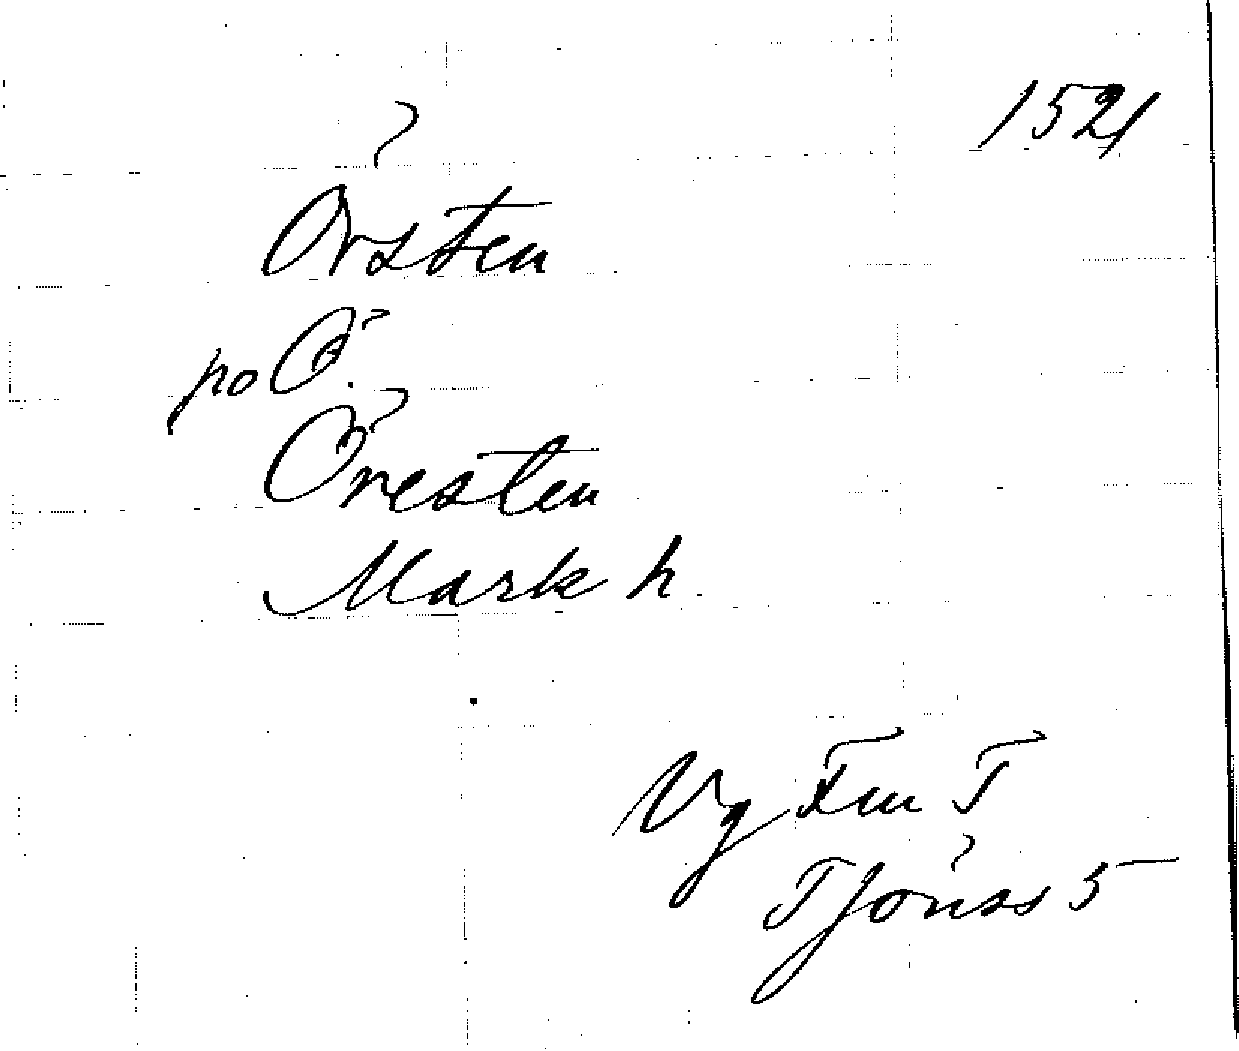 1521
Örsten
po Ö.
Öresten
Mark h.
Vg Fm T
Tjönss 5